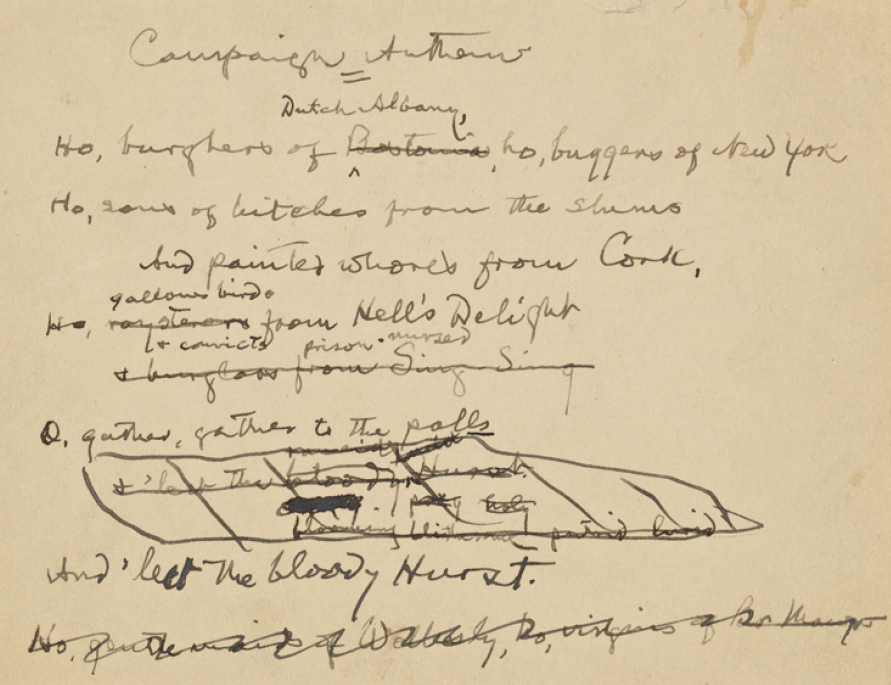 Campaign Anthem
Dutch Albany,
Ho, burghers of Bostonia, ho, buggers of New York
Ho, sons of bitches from the slums
And painted whores from Cork,
gallows birds
Ho, roysterers from Hell's Delight
& convicts prison-nursed
& burglars from Sing Sing
O, gather, gather to the polls
& 'lect the bloody Hurst.
holy
blooming putrid lurid
And 'lect the bloody Hurst.
Ho, gentle maids of Wellesly, ho, virgins of Br Mawr